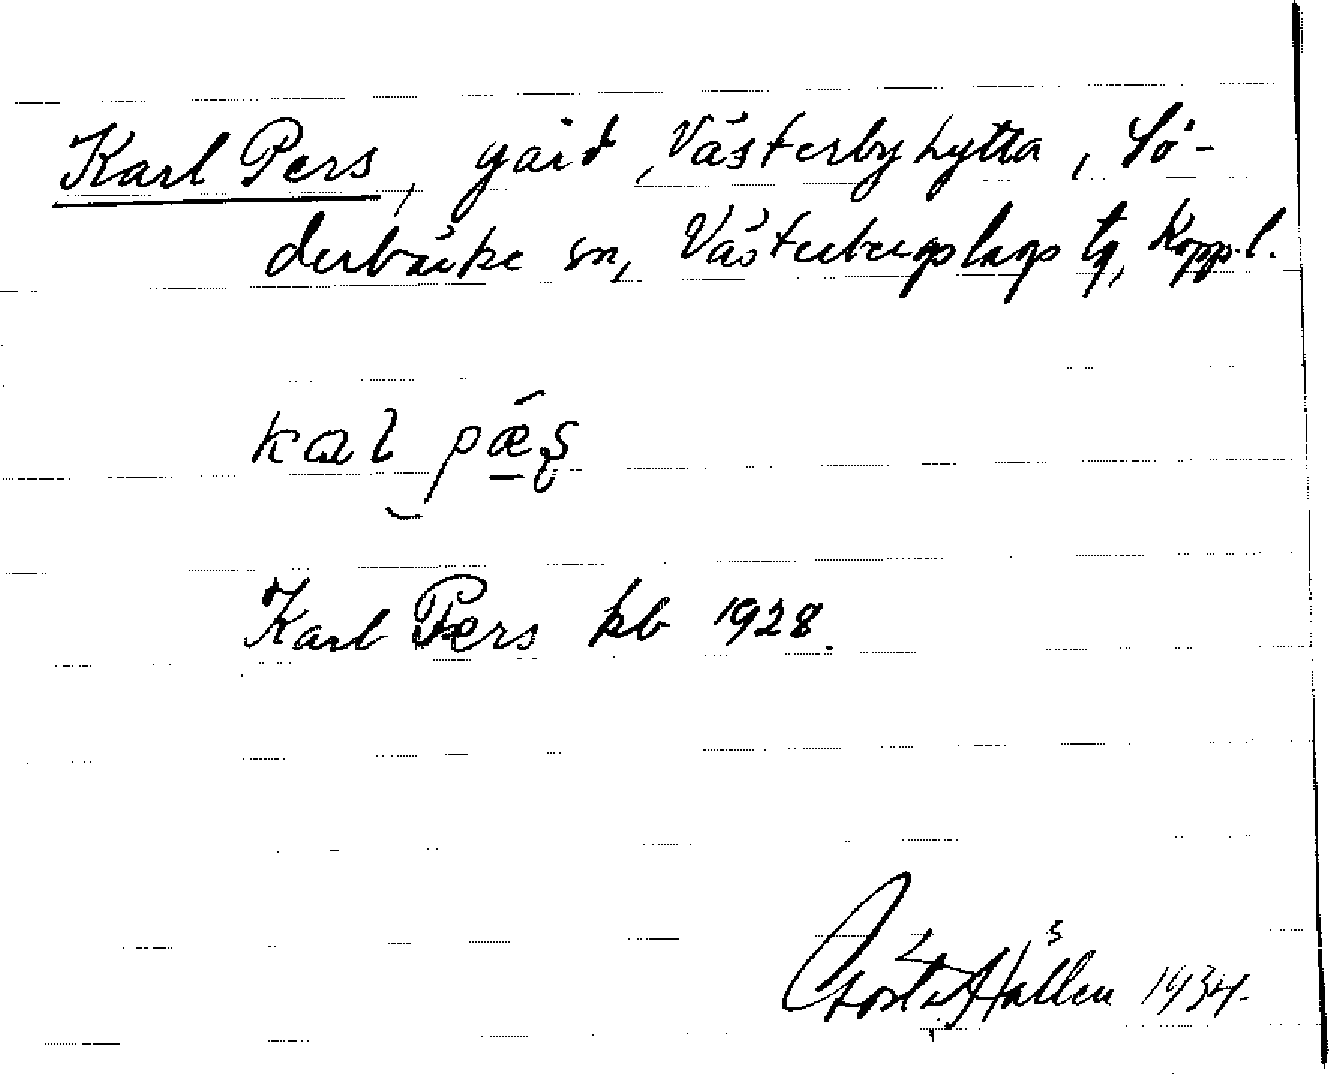 Karl Pers, gård, Västerbyhytta, Sö-
derbärke sn, Västerbergslags tg, Kopp.l.
kaɑl pǽʂ
Karl Pers kb 1928.
Gösta Hallén 1934.